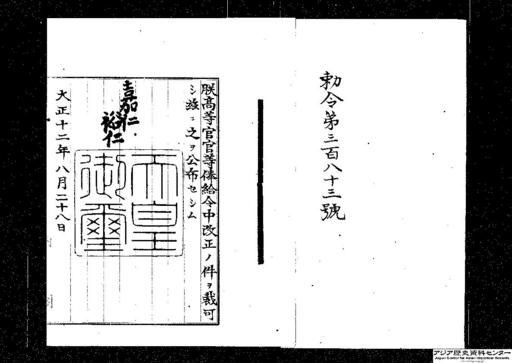 勅令第三百八十三號
朕高等官官等俸給令中改正ノ件ヲ裁可
シ茲ニ之ヲ公布セシム
嘉仁
裕仁
天皇
御璽
大正十二年八月二十八日
アジア歴史資料センター
Japan Center for Asian Historical Records